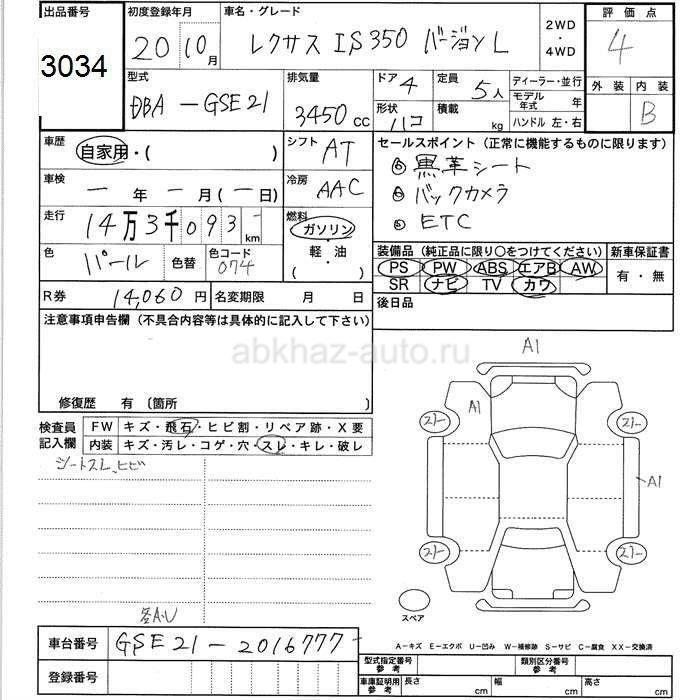 出品番号 初度登録年月 車名・グレード 2WD ・ 4WD 評価点
3034 20 10月 レクサス IS350 バージョンL 4
型式 排気量 ドア 4 定員 5人 ディーラー・並行 外装 内装
DBA-GSE21 3450cc モデル年式 年
形状 ハコ 積載 kg ハンドル 左・右 B
車歴 自家用・( ) シフト AT セールスポイント(正常に機能するものに限ります)
車検 ー年ー月(ー日) 冷房 AAC ◎黒革シート
◎バックカメラ
走行 14万3千093km 燃料 ガソリン ・ 軽・油 ・( ) ◎ETC
色 パール 色替 色コード 074
装備品(純正品に限り○をつけてください) 新車保証書
PS PW ABS エアB AW 有・無
SR ナビ TV カワ
R券 14,060円 名変期限 月 日 後日品
注意事項申告欄(不具合内容等は具体的に記入して下さい)
abkhaz-auto.ru
修復歴 有〔箇所 〕
検査員記入欄 FW キズ・飛石・ヒビ割・リペア跡・X要
内装 キズ・汚レ・コゲ・穴・スレ・キレ・破レ
シートスレ、ヒビ
A1
A1
A1
スペア
各A・U
車台番号 GSE21-2016777
A-キズ E-エクボ U-凹み W-補修跡 S-サビ C-腐食 XX-交換済
登録番号 型式指定番号参考 類別区分番号参考
車庫証明用参考 長さ cm 幅 cm 高さ cm